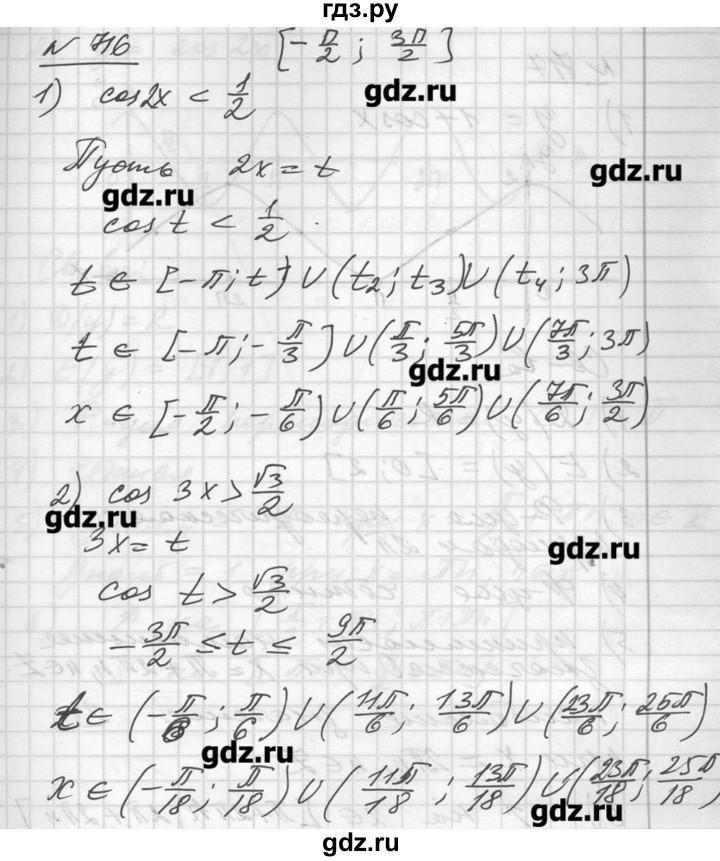 гдз.ру
№ 716 [-π/2; 3π/2]
1) cos2x < 1/2
gdz.ru
Пусть 2x = t
gdz.ru
gdz.ru
cos t < 1/2
t ∈ [-π; t) ∪ (t₂; t₃) ∪ (t₄; 3π)
t ∈ [-π; -π/3] ∪ (π/3; 5π/3) ∪ (7π/3; 3π)
gdz.ru
x ∈ [-π/2; -π/6) ∪ (π/6; 5π/6) ∪ (7π/6; 3π/2)
2) cos 3x > √3/2
gdz.ru
3x = t
gdz.ru
cos t > √3/2
-3π/2 ≤ t ≤ 9π/2
t ∈ (-π/6; π/6) ∪ (11π/6; 13π/6) ∪ (23π/6; 25π/6)
gdz.ru
x ∈ (-π/18; π/18) ∪ (11π/18; 13π/18) ∪ (23π/18; 25π/18)
gdz.ru
gdz.ru